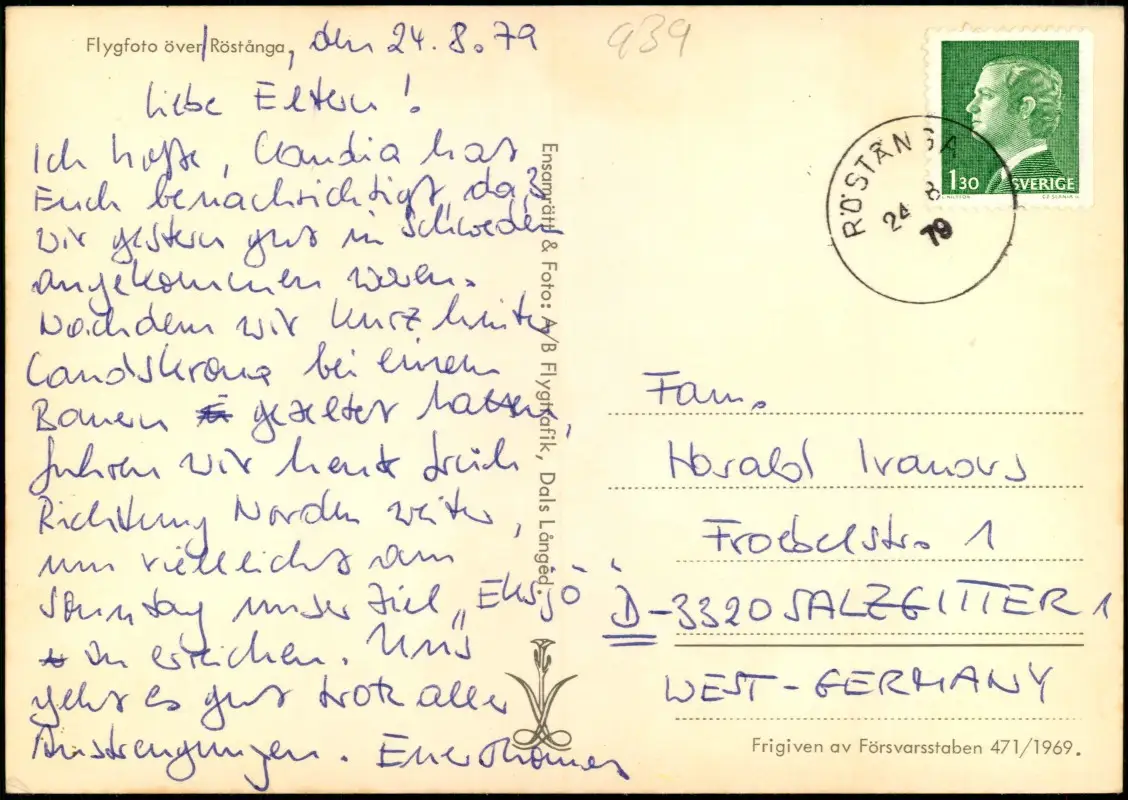 Flygfoto över Röstånga, den 24.8.79
Liebe Eltern!
Ich hoffe, Claudia hat
Euch benachrichtigt daß
wir gestern gut in Schweden
angekommen waren.
Nachdem wir kurz hinter
Landskrona bei einem
Bauern gezeltet hatten,
fuhren wir heute früh
Richtung Norden weiter,
um vielleicht am
Sonntag unser Ziel „Eksjö"
zu erreichen. Uns
geht es gut trotz aller
Anstrengungen. Euer Thomas
Ensamrätt & Foto: A/B Flygtrafik, Dals Långed.
939
RÖSTÅNGA
24 8
79
1 30 SVERIGE
Fam.
Harald Ivanovs
Froebelstr. 1
D-3320 SALZGITTER 1
WEST-GERMANY
Frigiven av Försvarsstaben 471/1969.